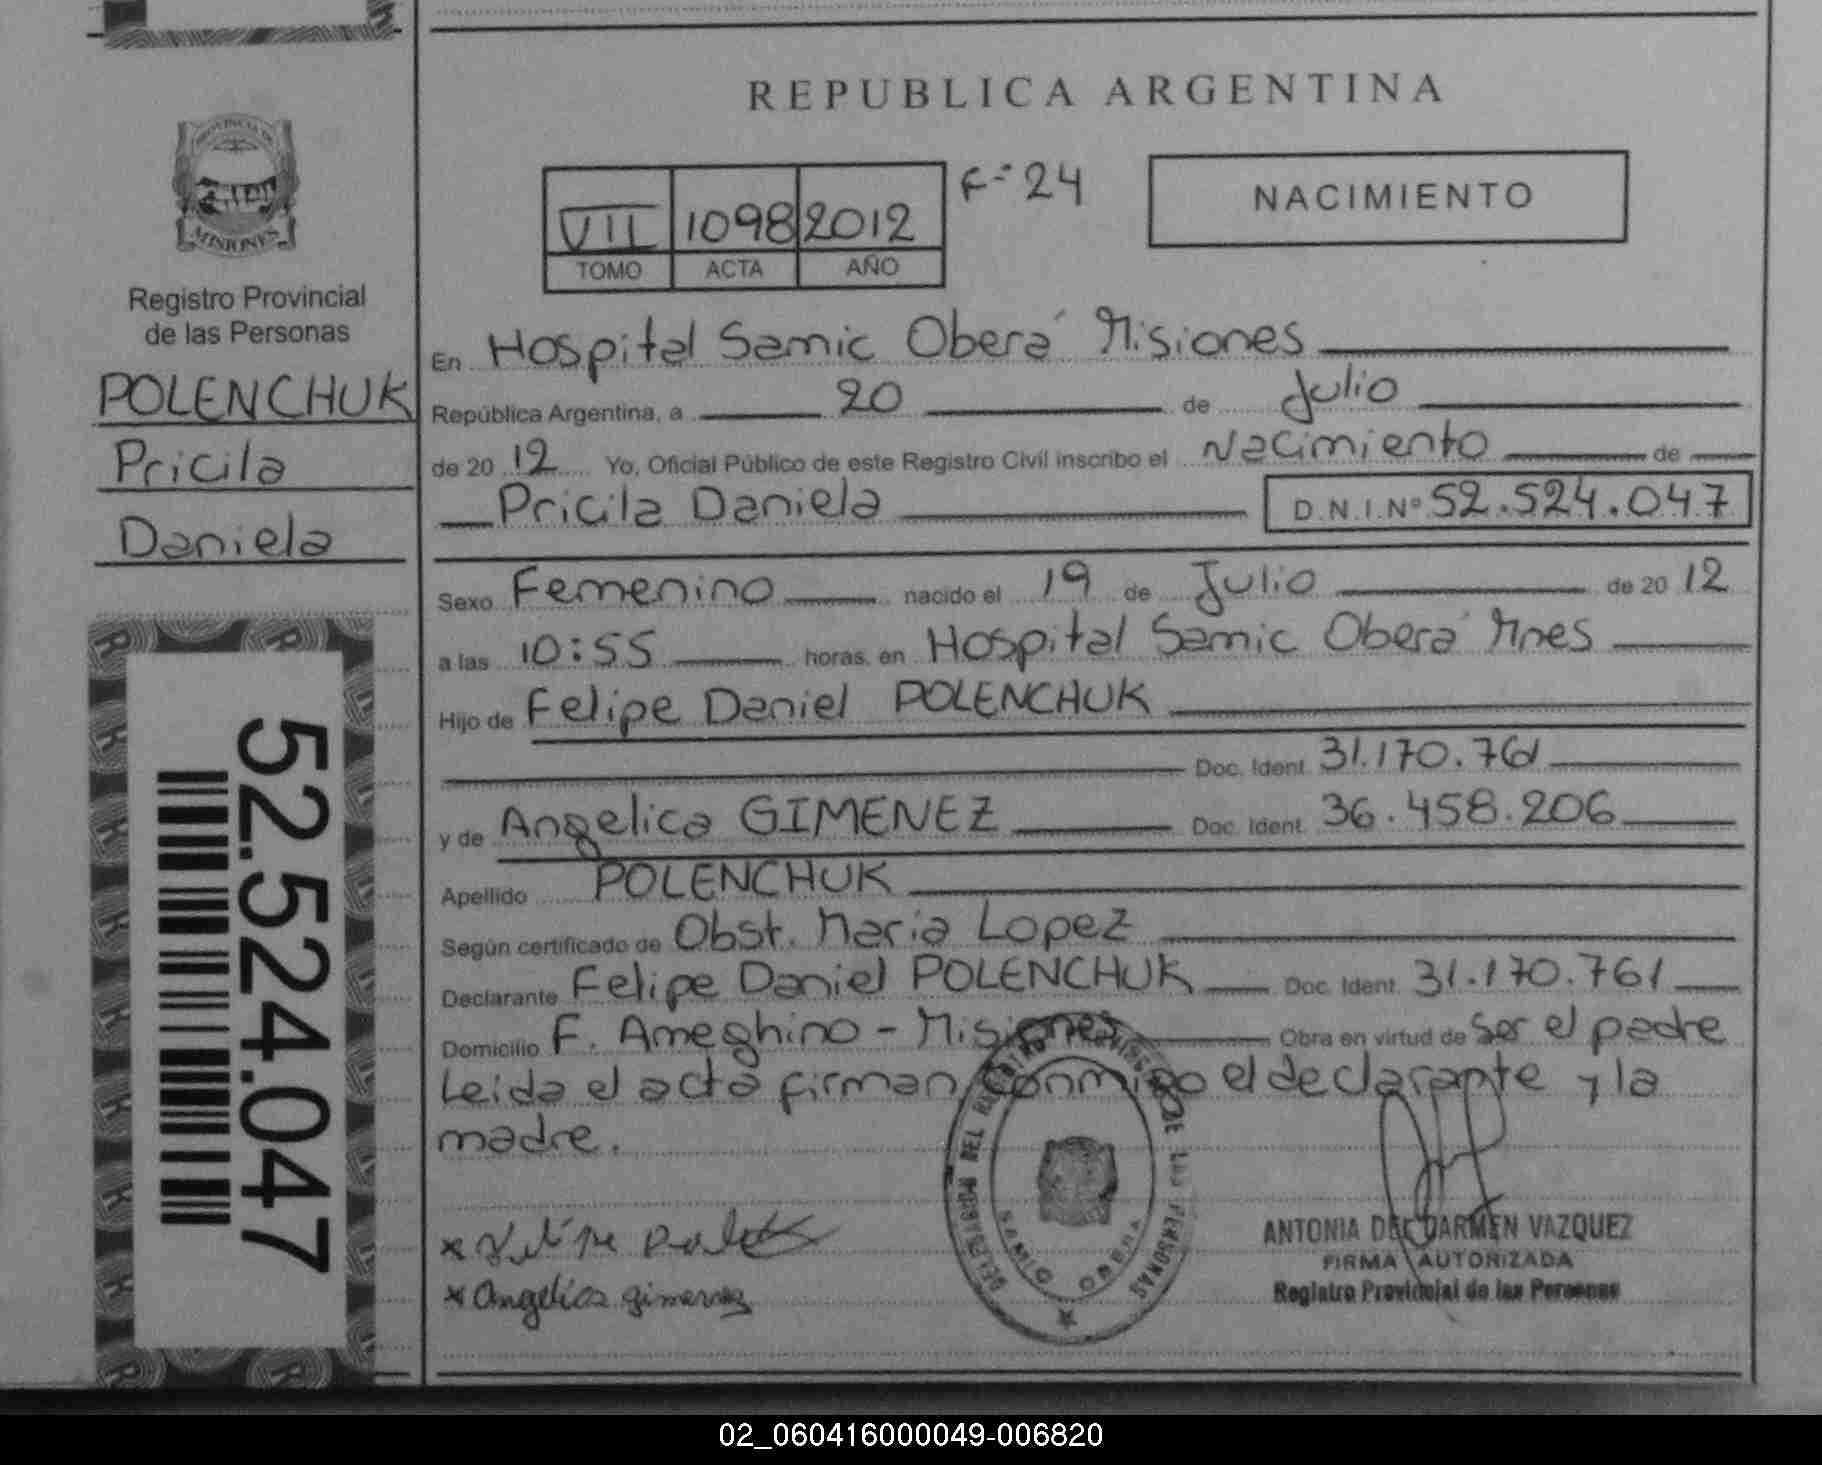 REPUBLICA ARGENTINA
PROVINCIA DE
MISIONES
Registro Provincial
de las Personas
POLENCHUK
Pricila
Daniela
52.524.047
VII 1098 2012 F-24
TOMO ACTA AÑO
NACIMIENTO
En Hospital Samic Oberá Misiones
República Argentina, a 20 de Julio
de 20 12 Yo, Oficial Público de este Registro Civil inscribo el Nacimiento de
Pricila Daniela D.N.I.Nº 52.524.047
Sexo Femenino nacido el 19 de Julio de 20 12
a las 10:55 horas, en Hospital Samic Oberá Mnes
Hijo de Felipe Daniel POLENCHUK
Doc. Ident. 31.170.761
y de Angelica GIMENEZ Doc. Ident. 36.458.206
Apellido POLENCHUK
Según certificado de Obst. Maria Lopez
Declarante Felipe Daniel POLENCHUK Doc. Ident. 31.170.761
Domicilio F. Ameghino - Misiones Obra en virtud de ser el padre
Leida el acta firman conmigo el declarante y la
madre.
DEL REGISTRO PROVINCIAL DE LAS PERSONAS
SAMIC OBERA
x
x Angelica gimenez
ANTONIA DEL CARMEN VAZQUEZ
FIRMA AUTORIZADA
Registro Provincial de las Personas
02_060416000049-006820